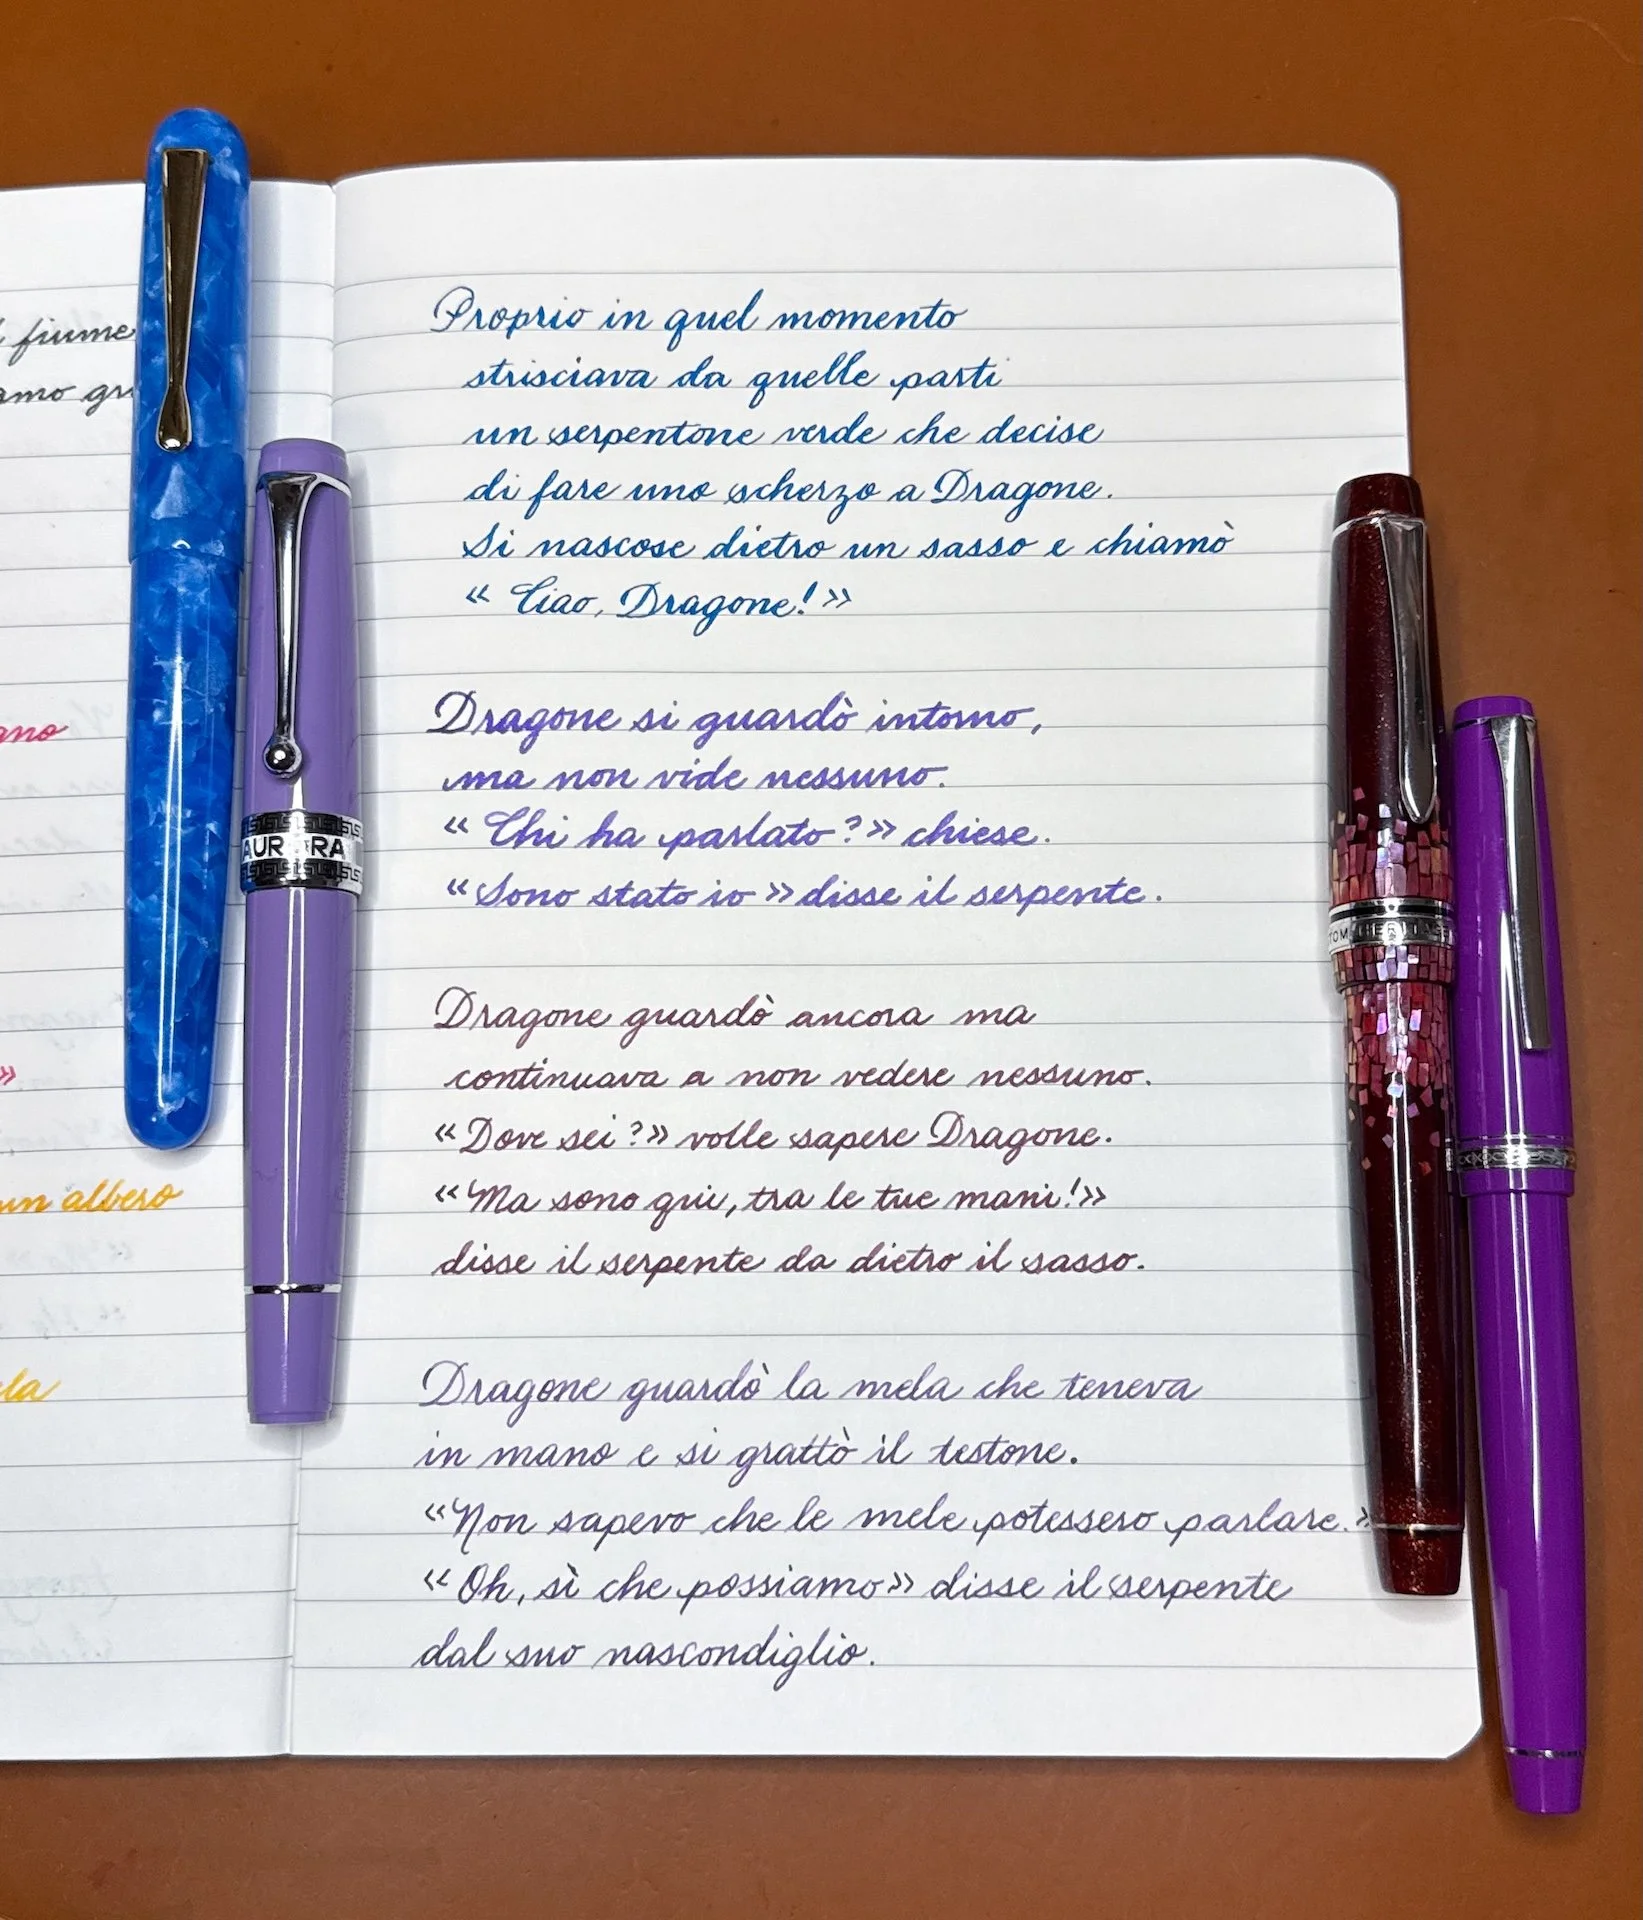 fiume
amo
ano
»
un albero
la
Proprio in quel momento
strisciava da quelle parti
un serpentone verde che decise
di fare uno scherzo a Dragone.
Si nascose dietro un sasso e chiamò
« Ciao, Dragone! »
Dragone si guardò intorno,
ma non vide nessuno.
« Chi ha parlato? » chiese.
« Sono stato io » disse il serpente.
Dragone guardò ancora ma
continuava a non vedere nessuno.
« Dove sei? » volle sapere Dragone.
« Ma sono qui, tra le tue mani! »
disse il serpente da dietro il sasso.
Dragone guardò la mela che teneva
in mano e si grattò il testone.
« Non sapevo che le mele potessero parlare. »
« Oh, sì che possiamo » disse il serpente
dal suo nascondiglio.
AURORA
TOM HERITAGE